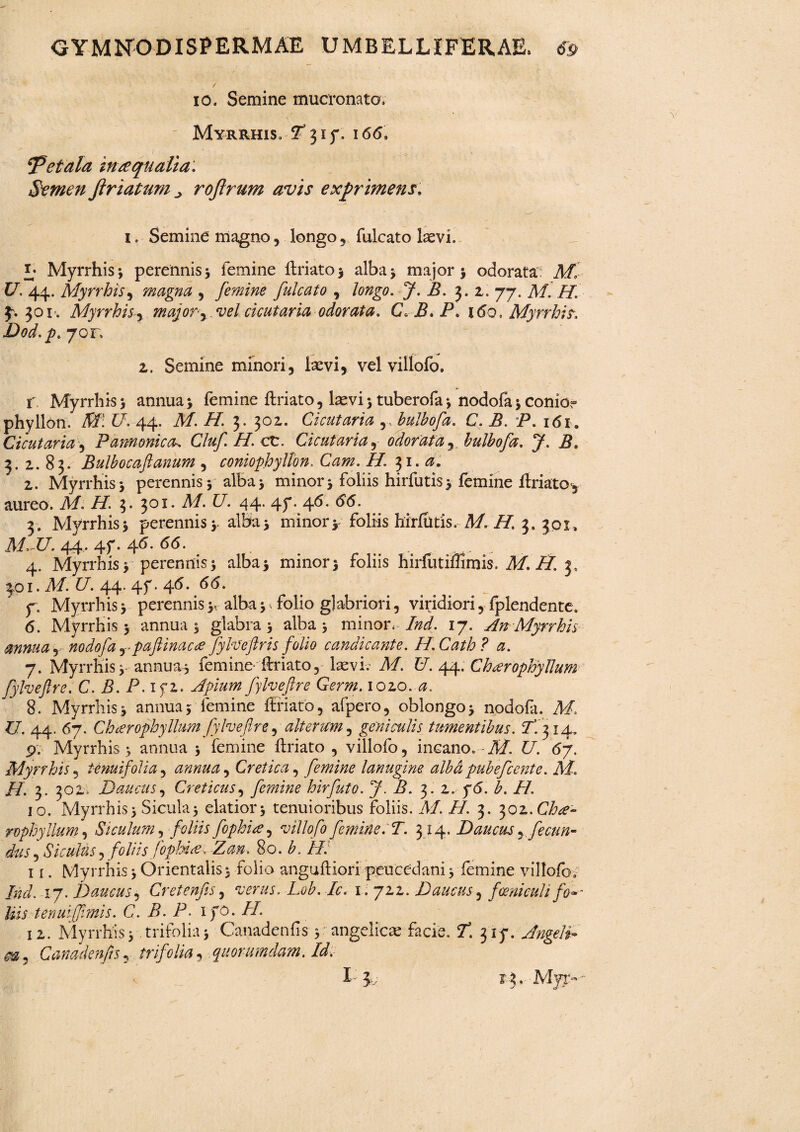 GYMNODISPERMAE UMBELLIFERAE. 69
10. Semine mucronato.
MYRRHIS. T 31ſ. 166.
Petala inæqualia.
Semen ſtriatum, roſtrum avis exprimens.
1. Semine magno, longo, ſulcato lævi.
1. Myrrhis; perennis; ſemine ſtriato; alba; major; odorata. M.
U. 44. Myrrhis, magna, ſemine ſulcato, longo. J. B. 3. 2. 77. M. H.
3. 301. Myrrhis, major, vel cicutaria odorata. C. B. P. 160. Myrrhis.
Dod. p. 701.
2. Semine minori, lævi, vel villoſo.
1. Myrrhis; annua; ſemine ſtriato, lævi; tuberoſa; nodoſa; conio-
phyllon. M. U. 44. M. H. 3. 302. Cicutaria, bulboſa. C. B. P. 161.
Cicutaria, Pannonica. Cluſ. H. cc. Cicutaria, odorata, bulboſa. J. B.
3. 2. 83. Bulbocaſtanum, coniophyllon. Cam. H. 31. a.
2. Myrrhis; perennis; alba; minor; foliis hirſutis; ſemine ſtriato,
aureo. M. H. 3. 301. M. U. 44. 45. 46. 66.
3. Myrrhis; perennis; alba; minor; foliis hirſutis. M. H. 3. 301.
M. U. 44. 45. 46. 66.
4. Myrrhis; perennis; alba; minor; foliis hirſutiſſimis. M. H. 3.
301. M. U. 44. 45. 46. 66.
5. Myrrhis; perennis; alba; folio glabriori, viridiori, ſplendente.
6. Myrrhis; annua; glabra; alba; minor. Ind. 17. An Myrrhis
annua, nodoſa, paſtinacæ ſylveſtris folio candicante. H. Cath? a.
7. Myrrhis; annua; ſemine ſtriato, lævi. M. U. 44. Chærophyllum
ſylveſtre. C. B. P. 152. Apium ſylveſtre Germ. 1020. a.
8. Myrrhis; annua; ſemine ſtriato, aſpero, oblongo; nodoſa. M.
U. 44. 67. Chærophyllum ſylveſtre, alterum, geniculis tumentibus. T. 314.
9. Myrrhis; annua; ſemine ſtriato, villoſo, incano. M. U. 67.
Myrrhis, tenuifolia, annua, Cretica, ſemine lanugine albâ pubeſcente. M.
H. 3. 302. Daucus, Creticus, ſemine hirſuto. J. B. 3. 2. 56. b. H.
10. Myrrhis; Sicula; elatior; tenuioribus foliis. M. H. 3. 302. Chæ-
rophyllum, Siculum, foliis ſophiæ, villoſo ſemine. T. 314. Daucus, ſecun-
dus, Siculus, foliis ſophiæ. Zan. 80. b. H.
11. Myrrhis; Orientalis; folio anguſtiori peucedani; ſemine villoſo.
Ind. 17. Daucus, Cretenſis, verus. Lob. Ic. 1. 722. Daucus, fœniculi fo-
liis tenuiſſimis. C. B. P. 150. H.
12. Myrrhis; trifolia; Canadenſis; angelicæ facie. T. 315. Angeli-
ca, Canadenſis, trifolia, quorumdam. Id.
I 3 13. Myr-